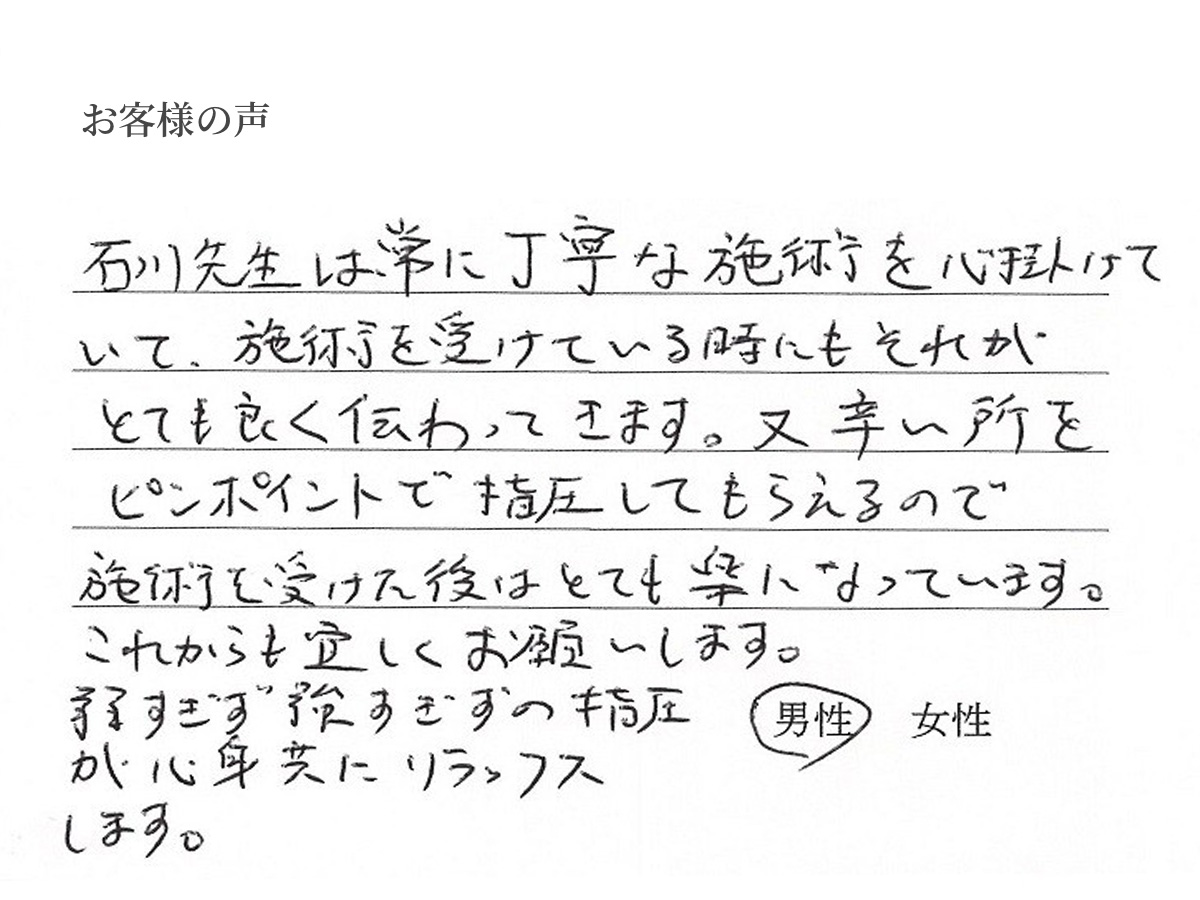 お客様の声
石川先生は常に丁寧な施術を心掛けて
いて、施術を受けている時にもそれが
とても良く伝わってきます。又辛い所を
ピンポイントで指圧してもらえるので
施術を受けた後はとても楽になっています。
これからも宜しくお願いします。
弱すぎず強すぎずの指圧
が心身共にリラックス
します。
男性 女性